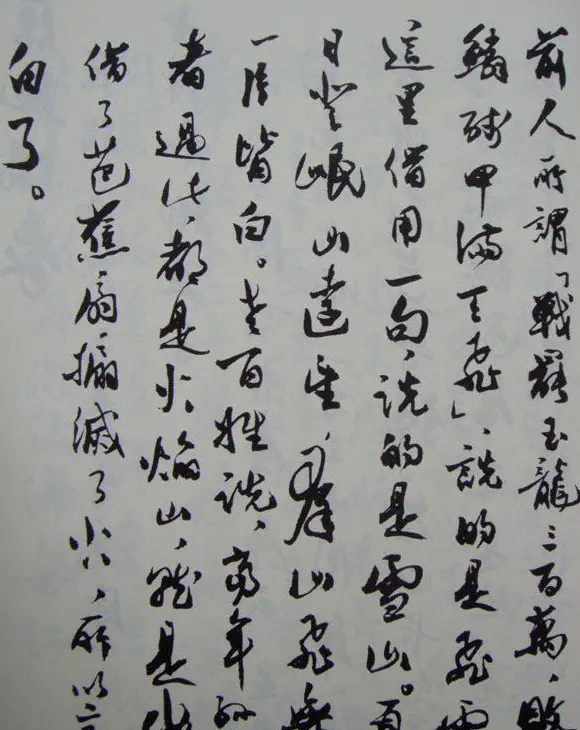 前人所謂「戰罷玉龍三百萬，敗
鱗殘甲滿天飛」，說的是飛雪
這里借用一句，說的是雪山。夏
日登岷山遠望，羣山飛舞
一片皆白。老百姓說，當年孫
者過此，都是火焰山，就是他
借了芭蕉扇搧滅了火，所以變
白了。